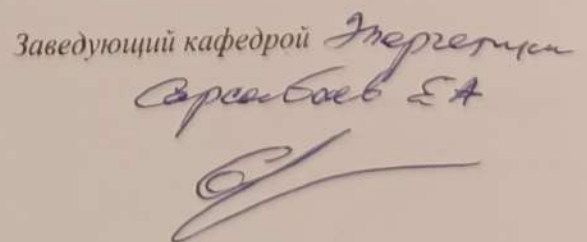 Заведующий кафедрой Энергетики
Сарсенбаев Е А